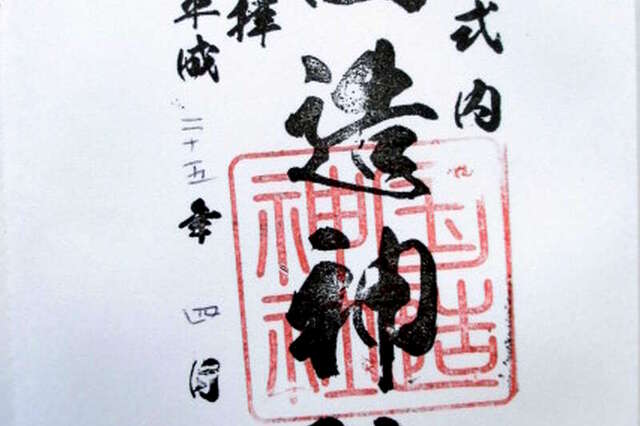 式内
造神
拝
平成二十五年四月
国造神社